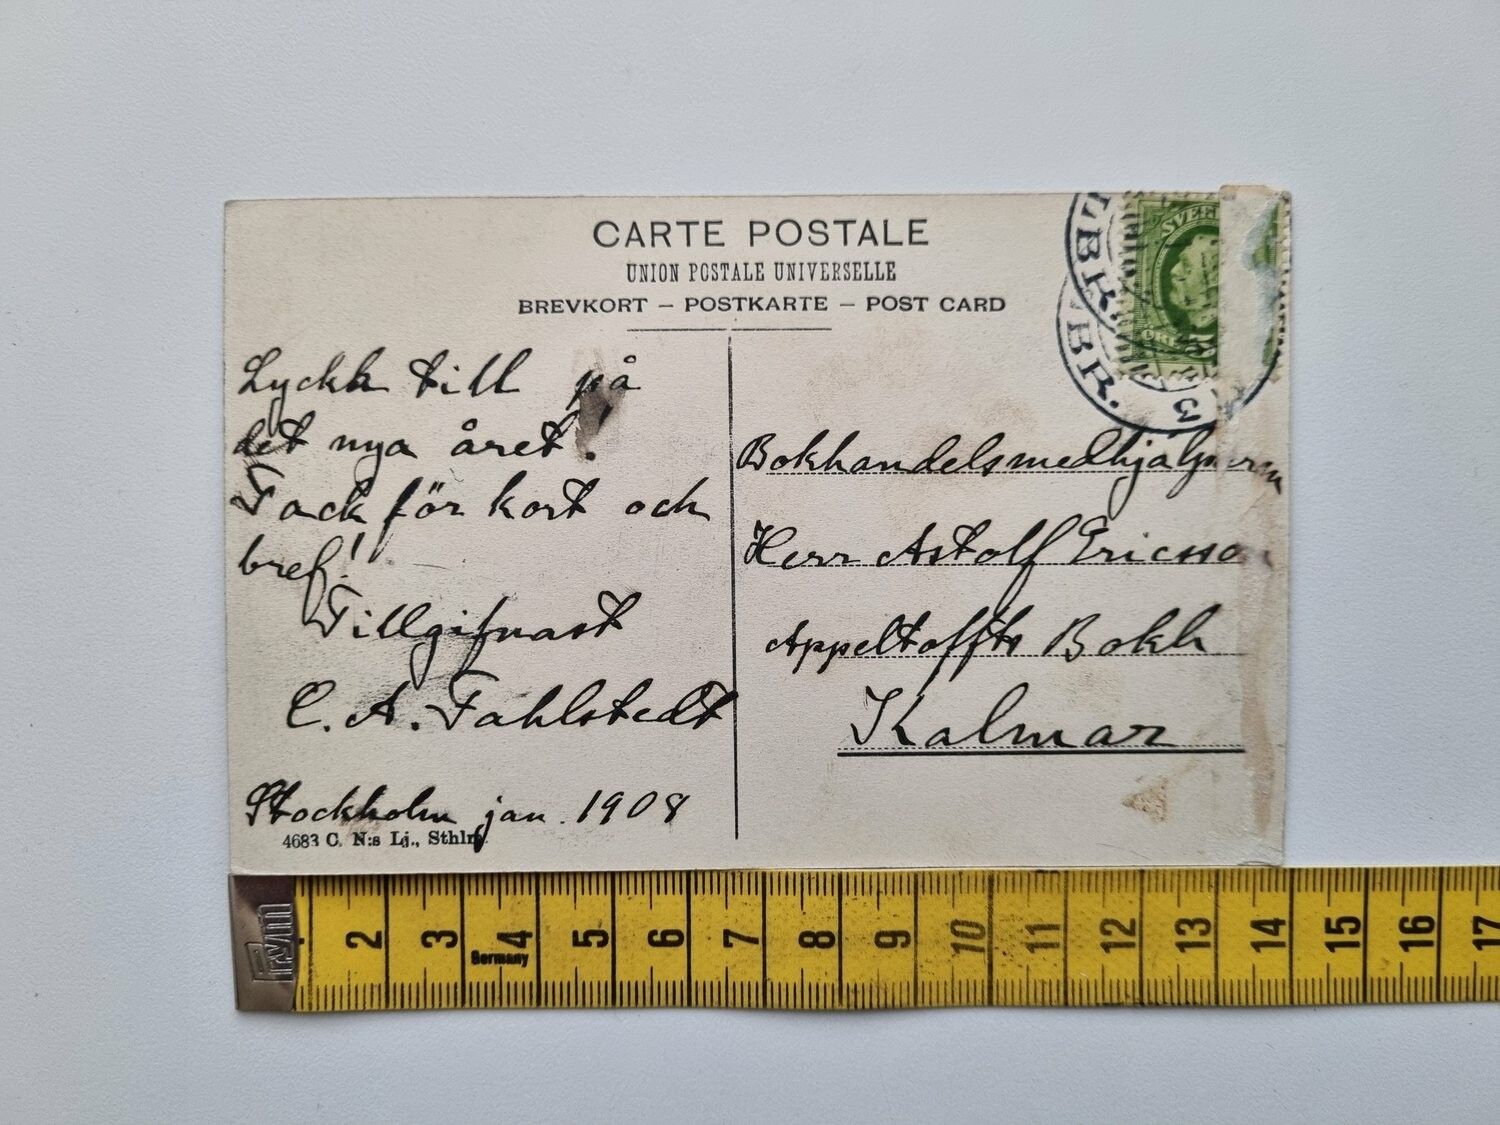 CARTE POSTALE
UNION POSTALE UNIVERSELLE
BREVKORT – POSTKARTE – POST CARD
Lyckh till på
det nya året!
Tack för kort och
bref!
Tillgifnast
C. A. Fahlstedt
Stockholm jan. 1908
4683 C. N:s Lj., Sthlm
LBR.
LBR.
3
SVER
Bokhandelsmedhjälparen
Herr Astolf Ericsson
Appeltoffts Bokh
Kalmar
2 3 4 5 6 7 8 9 10 11 12 13 14 15 16 17
Germany